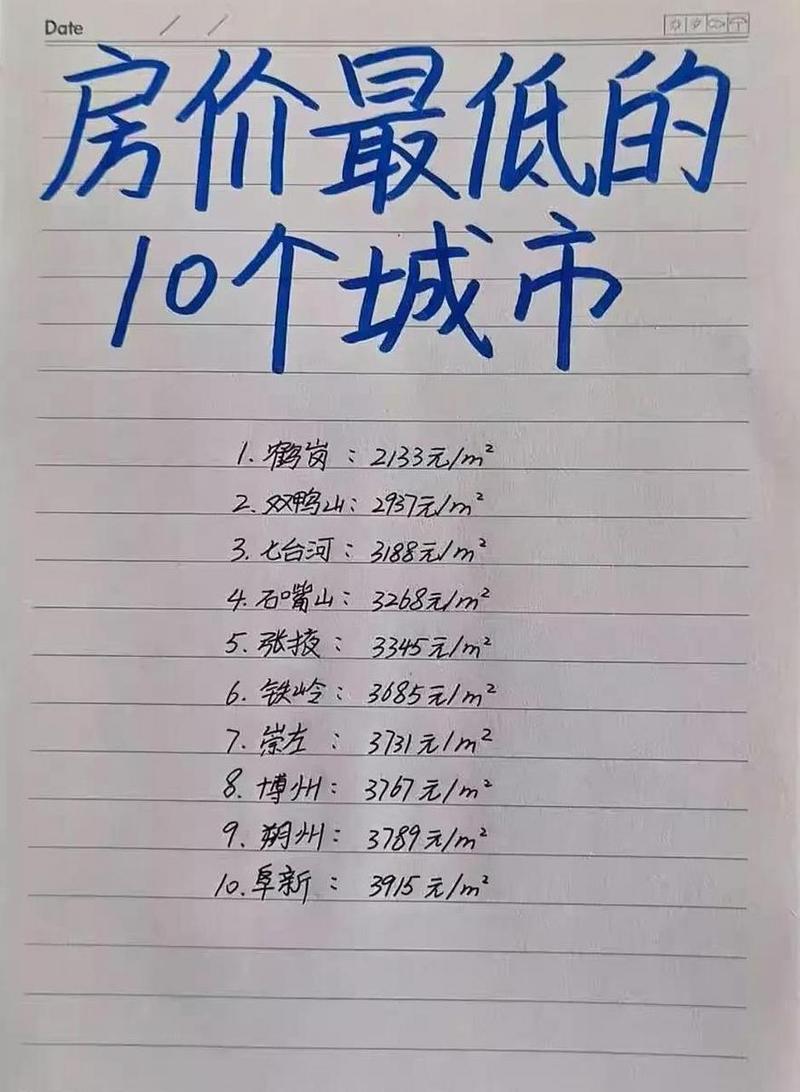 Date / /
房价最低的
10个城市
1.鹤岗：2133元/m²
2.双鸭山：2937元/m²
3.七台河：3188元/m²
4.石嘴山：3268元/m²
5.张掖：3345元/m²
6.铁岭：3685元/m²
7.崇左：3731元/m²
8.博州：3767元/m²
9.朔州：3789元/m²
10.阜新：3915元/m²